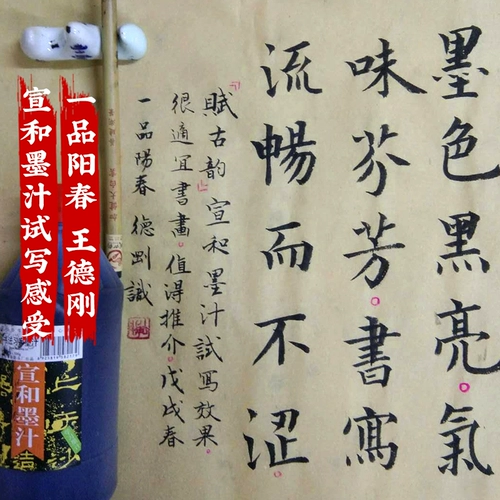 墨色黑亮。氣
味芬芳。書寫
流暢而不澀。
「賦古韵」宣和墨汁試寫效果。
很適宜書畫。值得推介。戊戌春
一品陽春 德剛識
一品阳春 王德刚
宣和墨汁试写感受
宣和墨汁